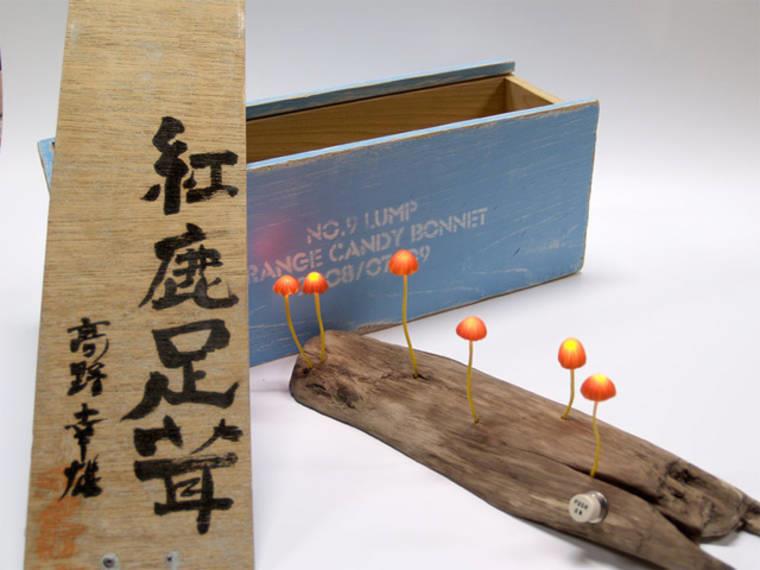 紅鹿足茸
高野幸雄
NO.9 LUMP
RANGE CANDY BONNET
08/07/09
PUSH